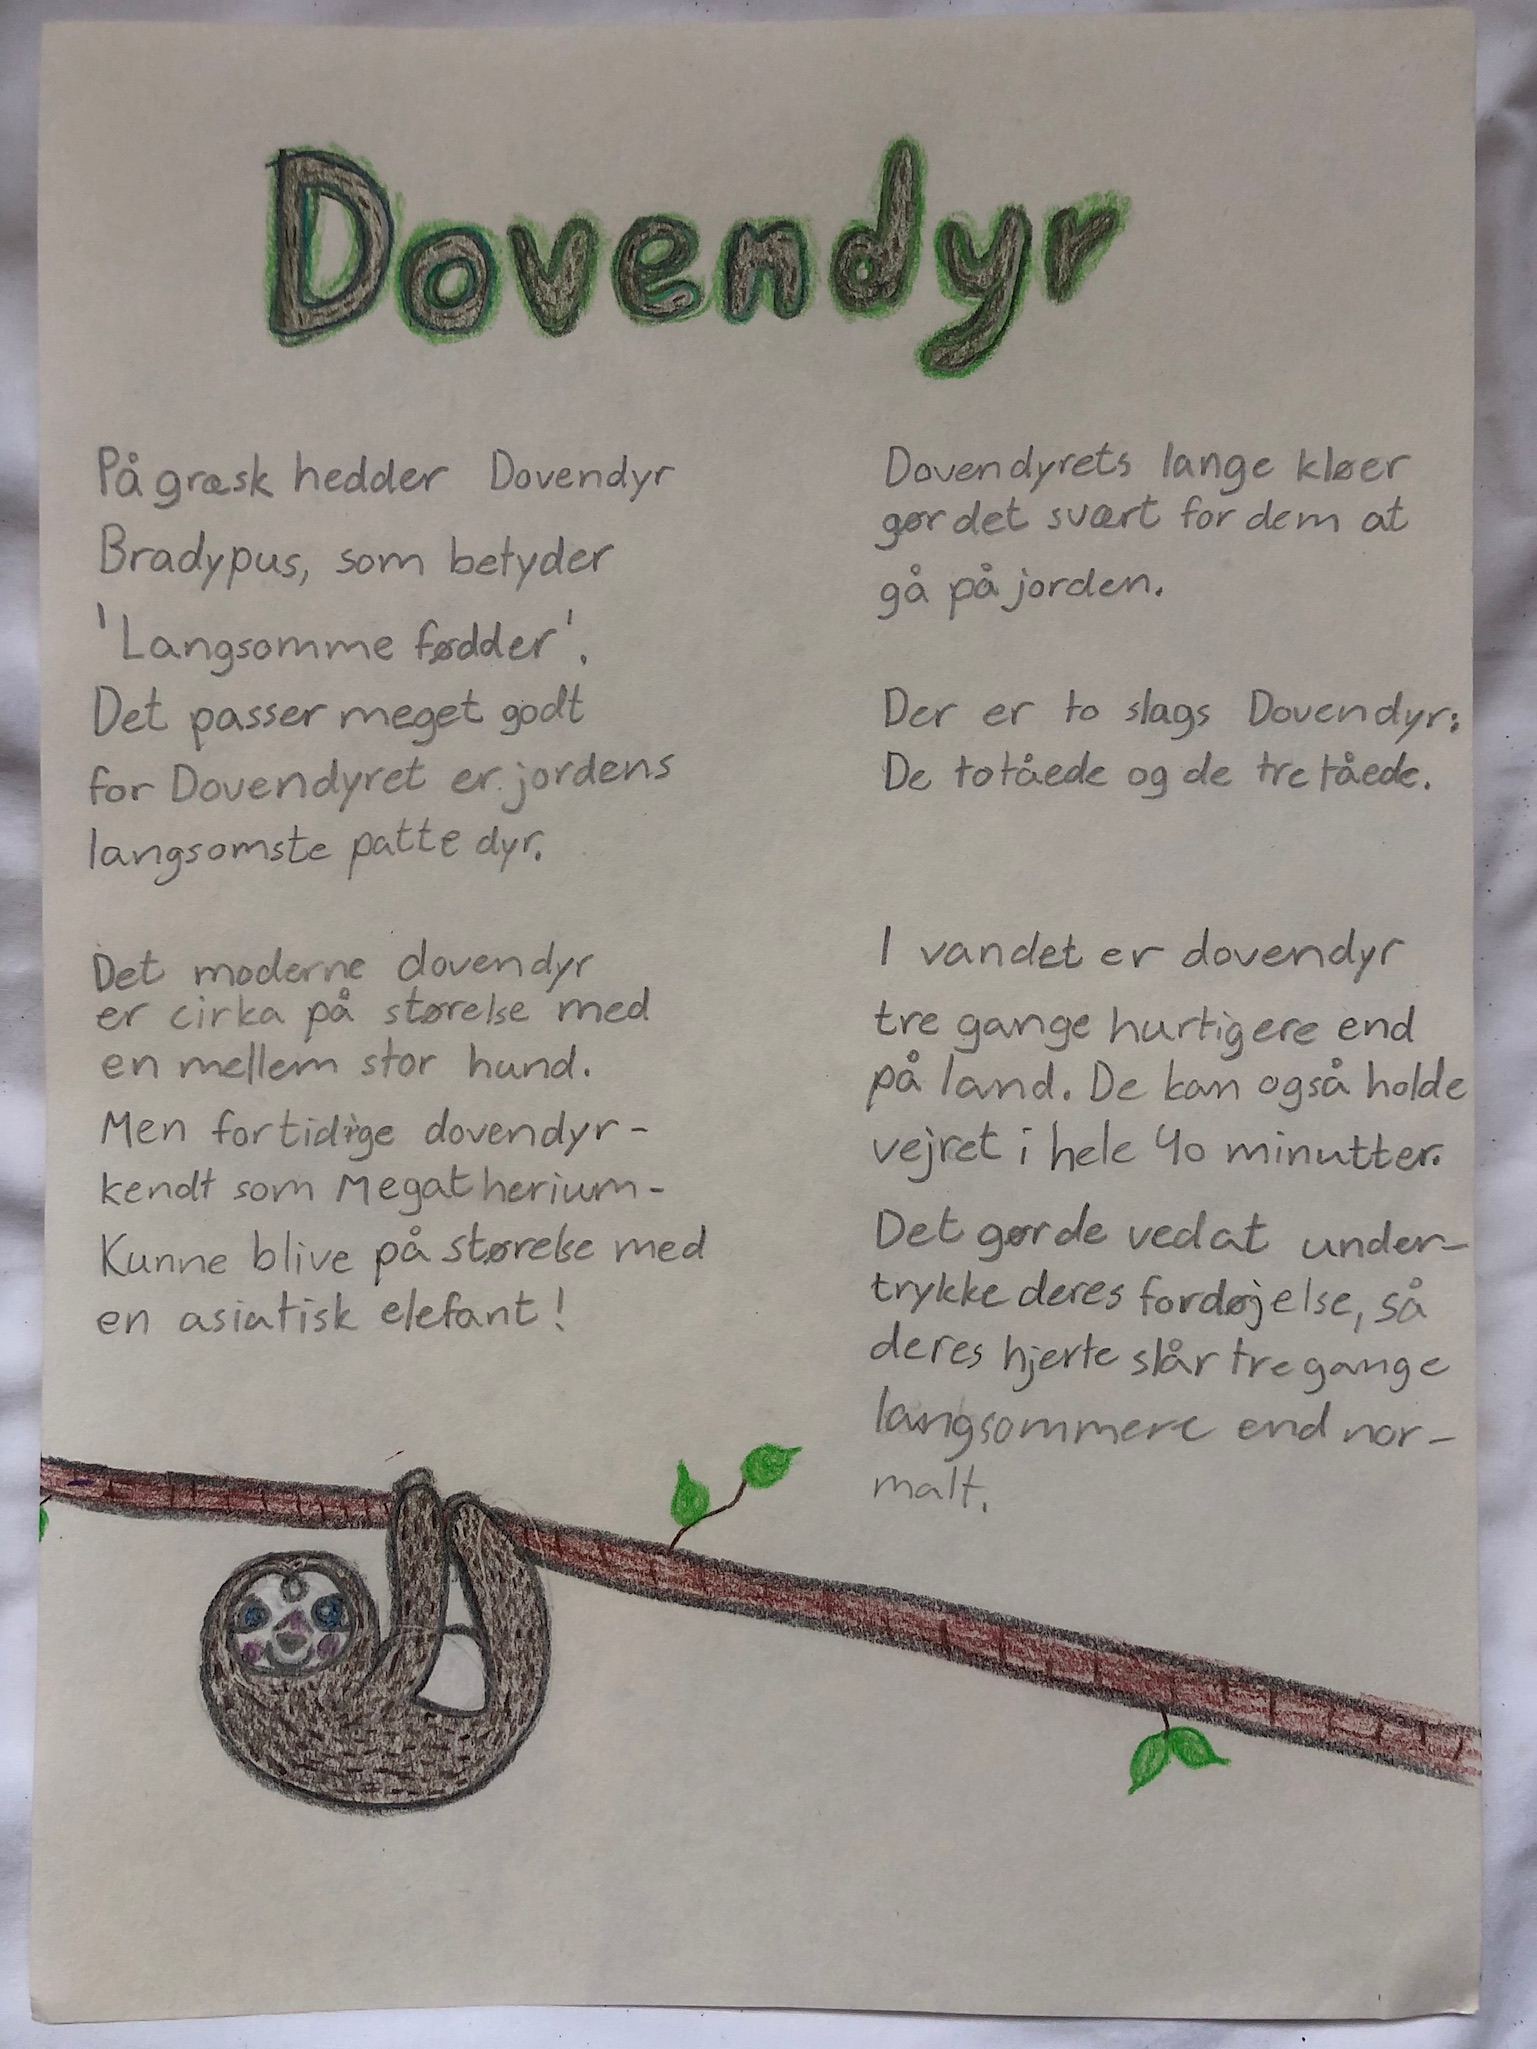 Dovendyr
På græsk hedder Dovendyr
Bradypus, som betyder
'Langsomme fødder'.
Det passer meget godt
for Dovendyret er jordens
langsomste patte dyr.
Det moderne dovendyr
er cirka på størelse med
en mellem stor hund.
Men fortidige dovendyr-
kendt som Megatherium-
Kunne blive på størelse med
en asiatisk elefant!
Dovendyrets lange kløer
gør det svært for dem at
gå på jorden.
Der er to slags Dovendyr:
De totåede og de tretåede.
I vandet er dovendyr
tre gange hurtigere end
på land. De kan også holde
vejret i hele 40 minutter.
Det gør de ved at under-
trykke deres fordøjelse, så
deres hjerte slår tre gange
langsommere end nor-
malt.